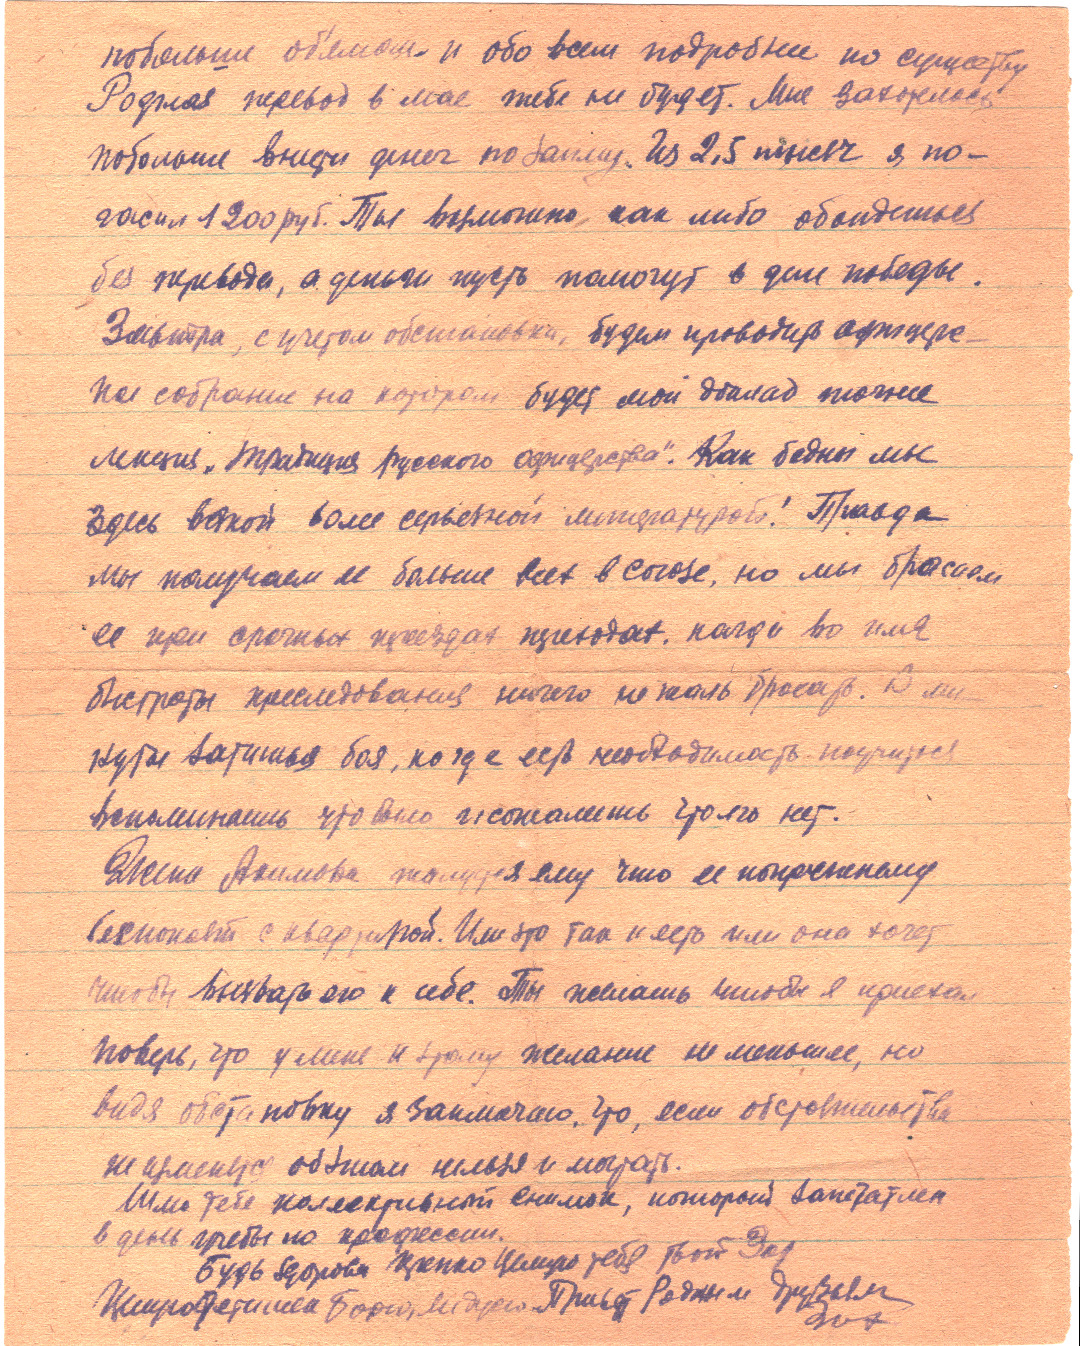 побольше об'емом и обо всем подробнее по существу
Родная перевод в мае тебе не будет. Мне захотелось
побольше внести денег по займу. Из 2,5 тысяч я по-
гасил 1200 руб. Ты возможно как либо обойдешься
без перевода, а деньги пусть помогут в деле победы.
Завтра, с учетом обстановки, будем проводить офицерс-
кое собрание на котором будет мой доклад точнее
лекция „Традиция русского офицерства". Как бедны мы
здесь всякой более серьезной литературой! Правда
мы получаем ее больше всех в союзе, но мы бросаем
ее при срочных переездах переходах. когда во имя
быстроты преследования ничего не жаль бросать. В ми-
нуты затишья боя, когда есть необходимость поучиться
вспоминаешь что было и сожалеешь что его нет.
Жена Акимова жалуется ему что ее попрежнему
беспокоят с квартирой. Или это так и есть или она хочет
чтобы вызвать его к себе. Ты желаешь чтобы я приехал
поверь, что у меня к этому желание не меньшее, но
видя обстановку я заключаю, что, если обстоятельства
не изменятся об этом нельзя и мечтать.
Шлю тебе коллективный снимок, который запечатлен
в день учебы по профессии.
Будь здорова Крепко Целую тебя твой Зах
Целую Привет Родным и друзьям
Зах